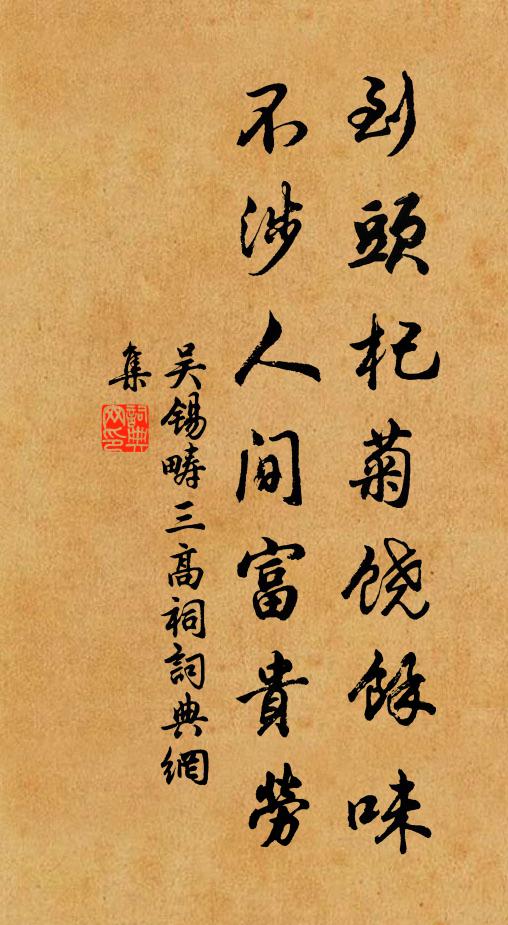 到頭杞菊饶餘味
不涉人間富貴勞
吴锡畴三高祠詞典網
集
詞典網印